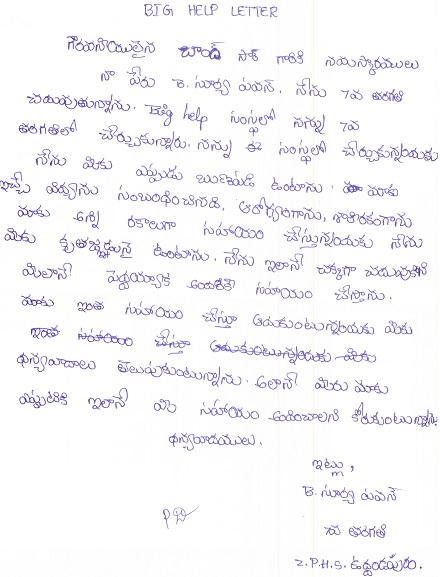 BIG HELP LETTER
గౌరవనీయులైన చాంద్ సార్ గారికి నమస్కారములు
నా పేరు B. సూర్య పవన్. నేను 7వ తరగతి
చదువుతున్నాను. Big help సంస్థలో నన్ను 7వ
తరగతిలో చేర్చుకున్నారు. నన్ను ఈ సంస్థలో చేర్చుకున్నందుకు
నేను మీకు ఎప్పుడు ఋణపడి ఉంటాను. మాకు
ఇచ్చే విద్యాను సంబంధించినది, ఆరోగ్యంగాను, శారీరకంగాను
మాకు అన్ని రకాలుగా సహాయం చేస్తున్నందుకు నేను
మీకు కృతజ్ఞుడునై ఉంటాను. నేను ఇలానే చక్కగా చదువుకుని
మీలానే పెద్దయ్యాక అందరికీ సహాయం చేస్తాను.
మాకు ఇంత సహాయం చేస్తూ ఆదుకుంటున్నందుకు మీకు
ఇంత సహాయం చేస్తూ ఆదుకుంటున్నందుకు మీకు
ధన్యవాదాలు తెలుపుకుంటున్నాను. అలానే మీరు మాకు
ఎప్పటికి ఇలానే మీ సహాయం అందించాలని కోరుకుంటున్నాను
ధన్యవాదములు.
ఇట్లు,
B. సూర్య పవన్
7వ తరగతి
Z.P.H.S. ఉద్దండపురం.